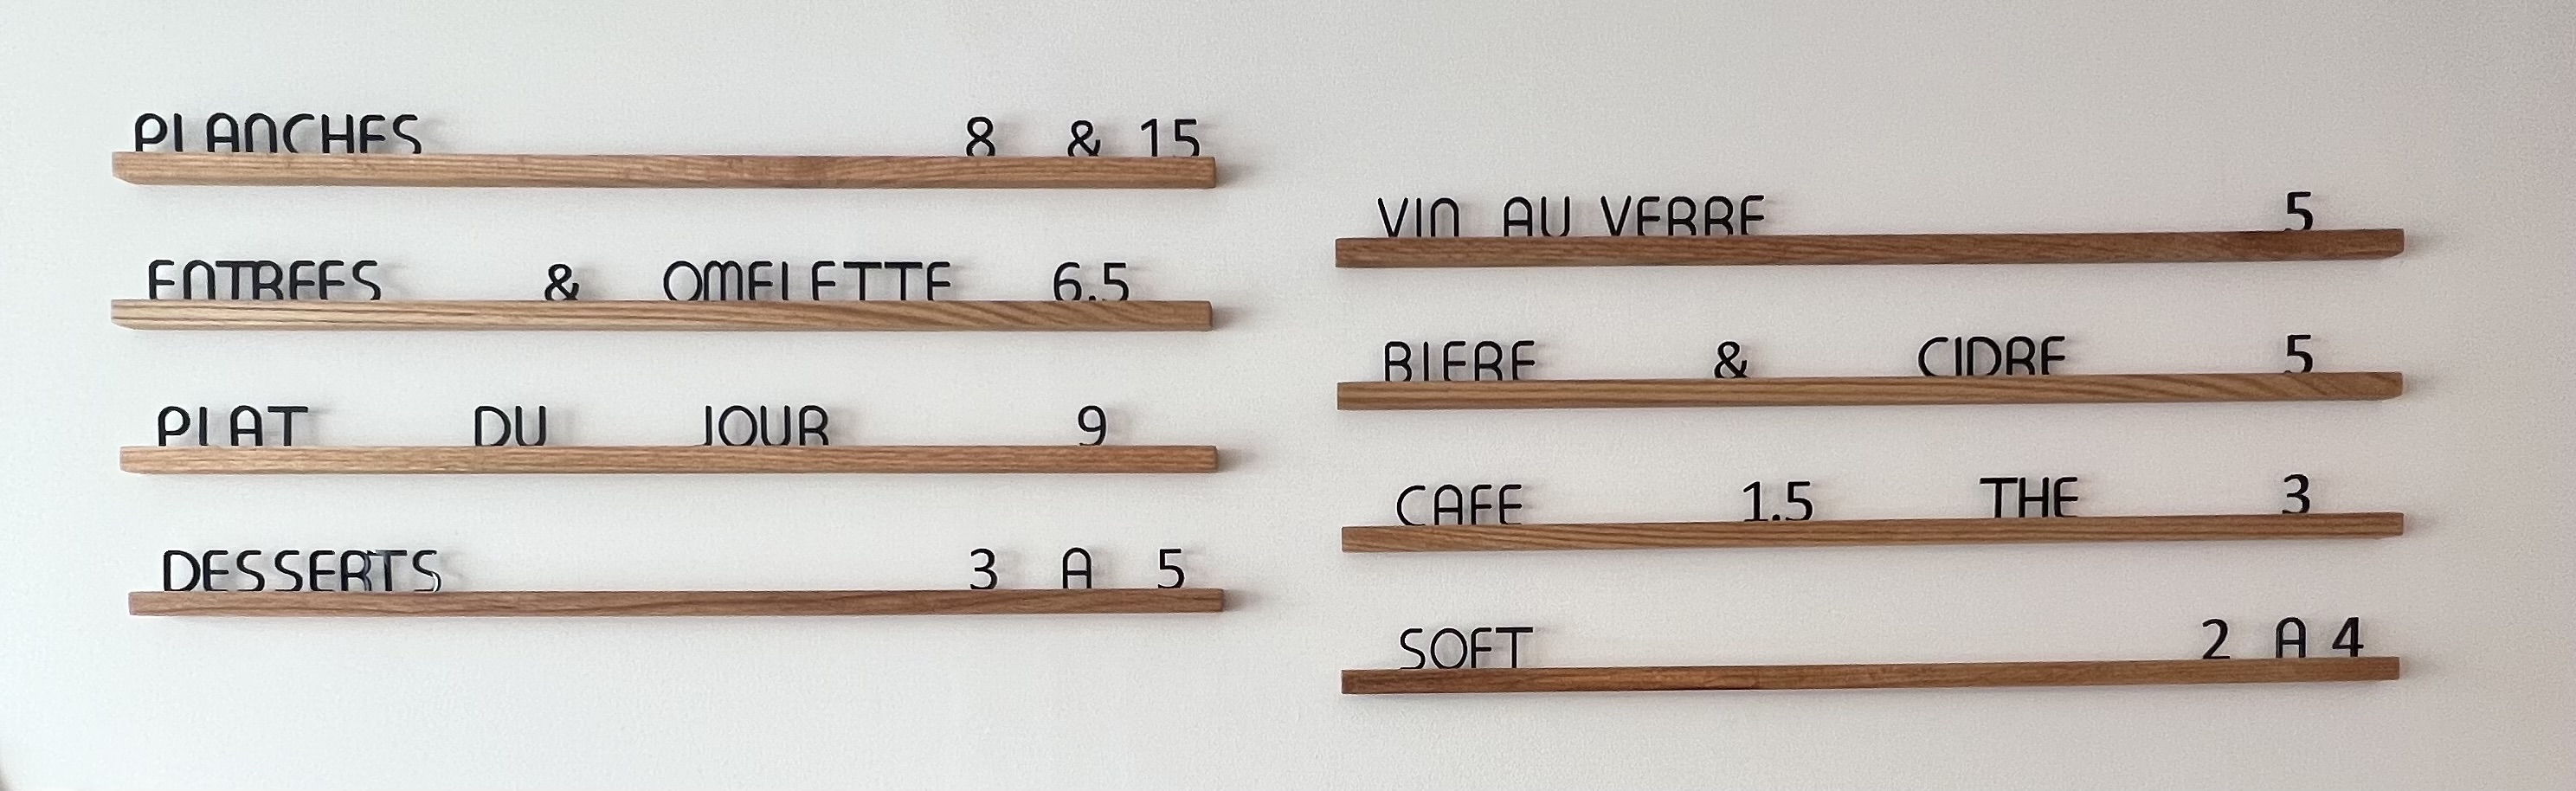 PLANCHES 8 & 15
ENTREES & OMELETTE 6.5
PLAT DU JOUR 9
DESSERTS 3 A 5
VIN AU VERRE 5
BIERE & CIDRE 5
CAFE 1.5 THE 3
SOFT 2 A 4